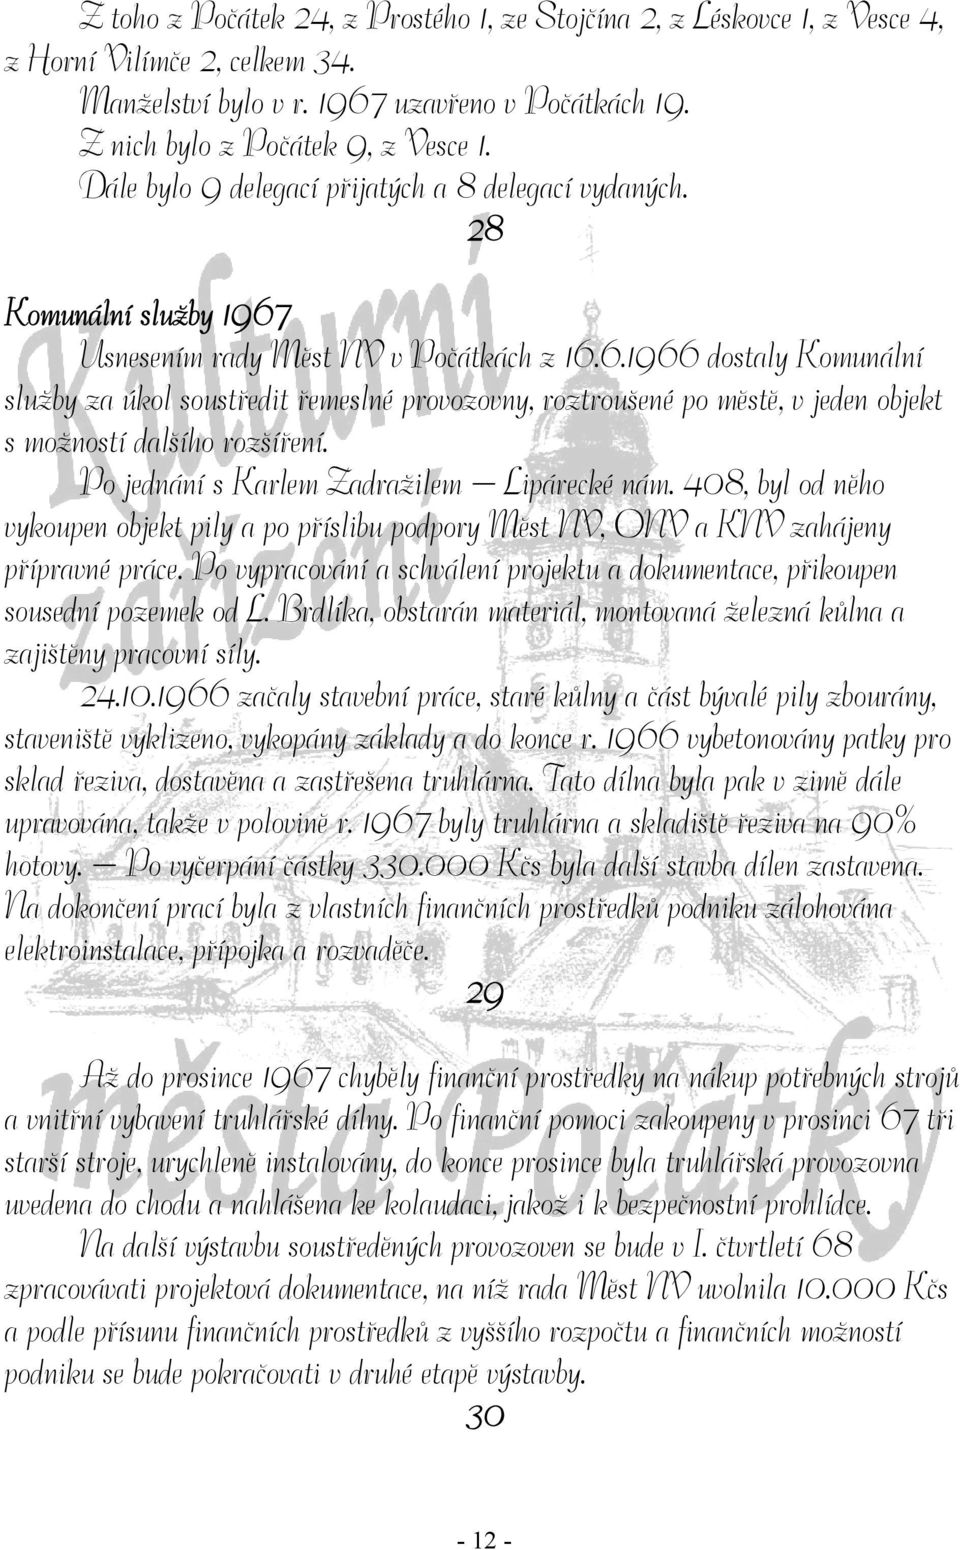 Z toho z Počátek 24, z Prostého 1, ze Stojčína 2, z Léskovce 1, z Vesce 4,
z Horní Vilímče 2, celkem 34.
Manželství bylo v r. 1967 uzavřeno v Počátkách 19.
Z nich bylo z Počátek 9, z Vesce 1.
Dále bylo 9 delegací přijatých a 8 delegací vydaných.
28
Komunální služby 1967
Usnesením rady Měst NV v Počátkách z 16.6.1966 dostaly Komunální
služby za úkol soustředit řemeslné provozovny, roztroušené po městě, v jeden objekt
s možností dalšího rozšíření.
Po jednání s Karlem Zadražilem – Lipárecké nám. 408, byl od něho
vykoupen objekt pily a po příslibu podpory Měst NV, ONV a KNV zahájeny
přípravné práce. Po vypracování a schválení projektu a dokumentace, přikoupen
sousední pozemek od L. Brdlíka, obstarán materiál, montovaná železná kůlna a
zajištěny pracovní síly.
24.10.1966 začaly stavební práce, staré kůlny a část bývalé pily zbourány,
staveniště vykliženo, vykopány základy a do konce r. 1966 vybetonovány patky pro
sklad řeziva, dostavěna a zastřešena truhlárna. Tato dílna byla pak v zimě dále
upravována, takže v polovině r. 1967 byly truhlárna a skladiště řeziva na 90%
hotovy. – Po vyčerpání částky 330.000 Kčs byla další stavba dílen zastavena.
Na dokončení prací byla z vlastních finančních prostředků podniku zálohována
elektroinstalace, přípojka a rozvaděče.
29
Až do prosince 1967 chyběly finanční prostředky na nákup potřebných strojů
a vnitřní vybavení truhlářské dílny. Po finanční pomoci zakoupeny v prosinci 67 tři
starší stroje, urychleně instalovány, do konce prosince byla truhlářská provozovna
uvedena do chodu a nahlášena ke kolaudaci, jakož i k bezpečnostní prohlídce.
Na další výstavbu soustředěných provozoven se bude v I. čtvrtletí 68
zpracovávati projektová dokumentace, na níž rada Měst NV uvolnila 10.000 Kčs
a podle přísunu finančních prostředků z vyššího rozpočtu a finančních možností
podniku se bude pokračovati v druhé etapě výstavby.
30
- 12 -
Kulturní
zařízení
města Počátky